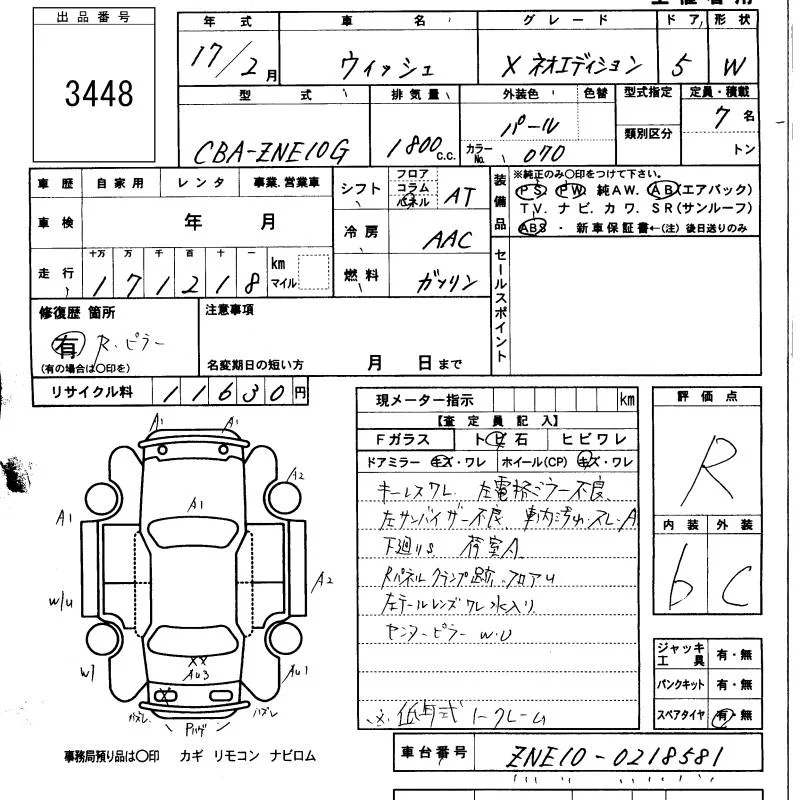 出品番号
3448
年式 車名 グレード ドア 形状
17/2月 ウィッシュ X ネオエディション 5 W
型式 排気量 外装色 色替 型式指定 定員・積載
CBA-ZNE10G 1800 c.c. パール 7名
カラーNo. 070 類別区分 トン
車歴 自家用 レンタ 事業.営業車
シフト フロア コラム パネル AT
車検 年 月
冷房 AAC
走行 十万 万 千 百 十 一
171218 km マイル
燃料 ガソリン
装備品 ※純正のみ○印をつけて下さい。
PS PW 純AW. AB(エアバック)
TV. ナビ. カワ. SR(サンルーフ)
ABS ・ 新車保証書←(注) 後日送りのみ
セールスポイント
修復歴 箇所
有 R.ピラー
(有の場合は○印を)
注意事項
名変期日の短い方 月 日まで
リサイクル料 11630円
現メーター指示 km
【査定員記入】
Fガラス トビ石 ヒビワレ
ドアミラー キズ・ワレ ホイール(CP) キズ・ワレ
キーレスワレ 左電格ミラー不良
左サンバイザー不良 車内汚れ.スレ.A
下廻りS 荷室A
Rパネルクランプ跡 フロアU
左テールレンズワレ水入り
センターピラー W.U
※ 低年式 ノークレーム
評価点
R
内装 外装
b C
ジャッキ工具 有・無
パンクキット 有・無
スペアタイヤ 有・無
A1 A1
A2
A1
A1
A2
W/U
W1
XX
AU3
AU1
X
ガスレ
Pハゲ
ハブレ
事務局預り品は○印 カギ リモコン ナビロム
車台番号 ZNE10-0218581